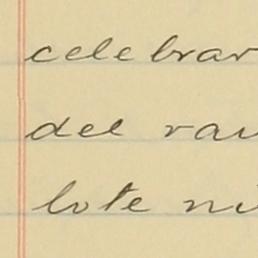 celebrar
del rau
lote ni